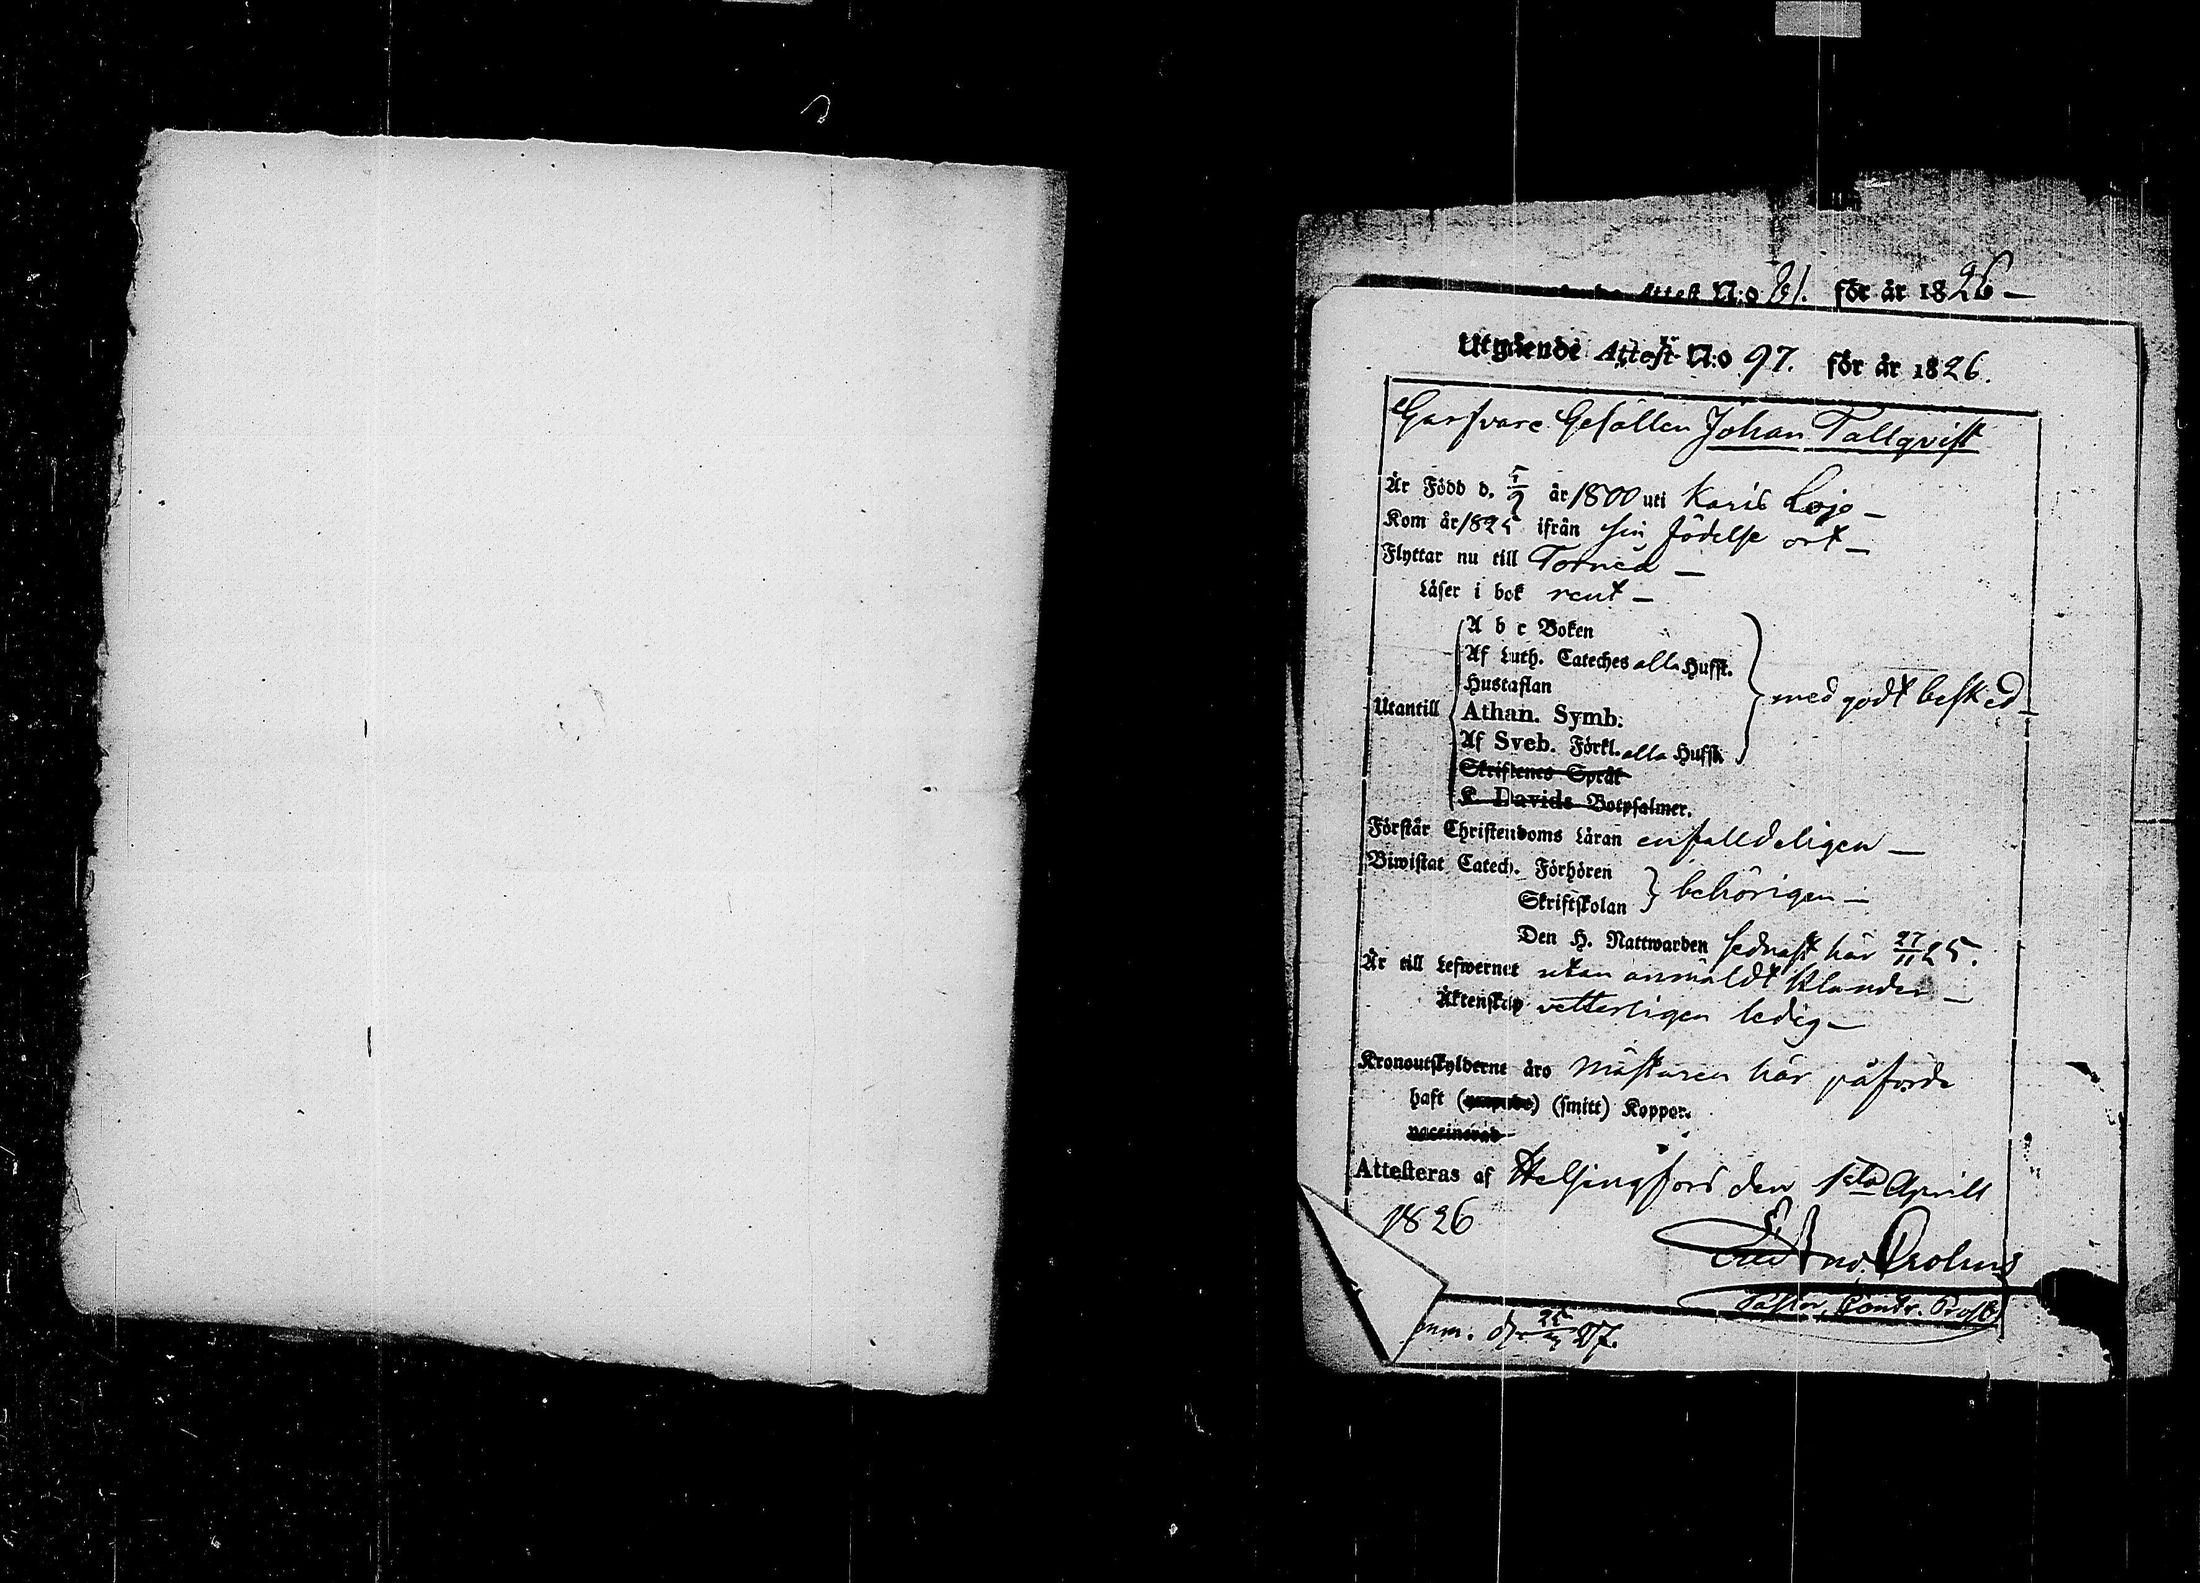 Attest N:o 61. för år 1826 —
Utgående Attest N:o 97. för år 1826.
Garfvare Gesällen Johan Tallqvist
Är Född d. 5/9 år 1800 uti Karis Lojo —
Kom år 1825 ifrån sin födelse ort —
Flyttar nu till Torneå —
Läser i bok rent —
A b c Boken
Af Luth. Cateches alla Hufst.
Hustaflan
Utantill Athan. Symb. med godt besked —
Af Sveb. Förkl. alla Hufst.
Skriftenes Språk
K. Davids Botpsalmer.
Förstår Christendoms Läran enfalldeligen —
Biwistat Catech. Förhören
Skriftskolan behörigen —
Den H. Nattwarden sednast här 27/11 25.
Är till Lefwernet utan anmäldt klander —
Äktenskap vetterligen ledig —
Kronoutskylderne äro Mästaren här påförde
haft () (smitt) Koppor.
vaccinerad
Attesteras af Helsingfors den 1sta Aprill
1826
Pastor, Contr. Prost
27.